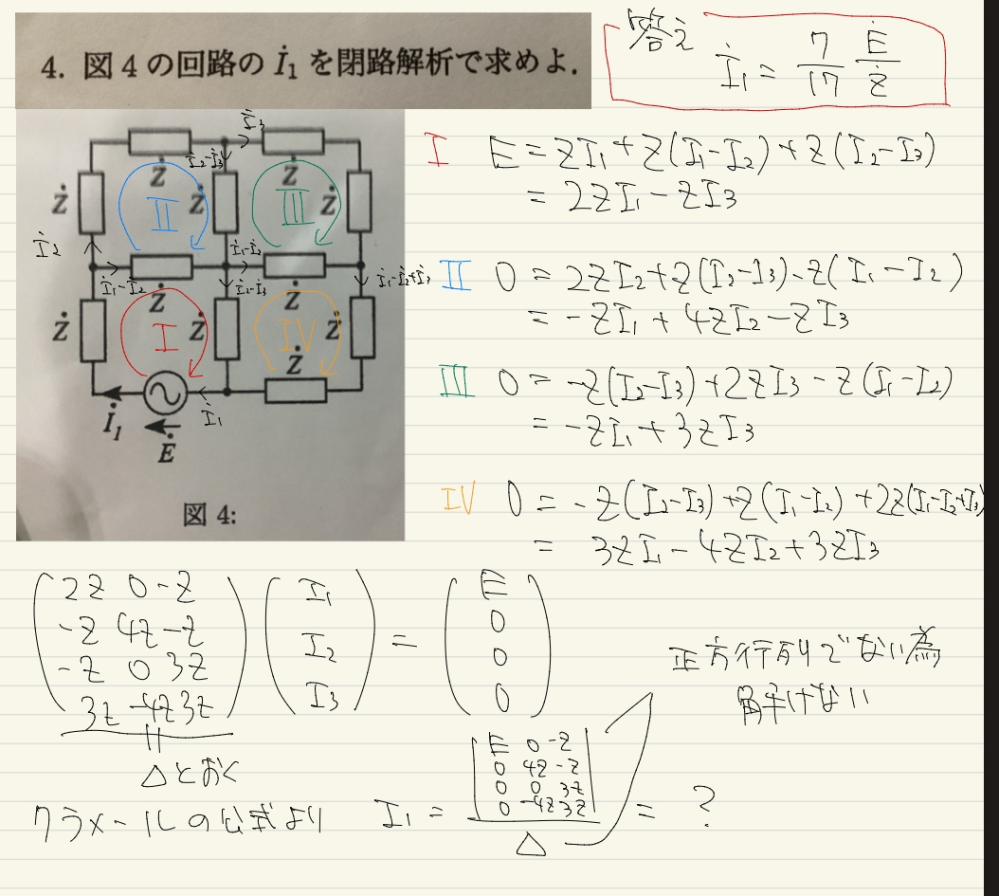 4. 図4の回路の İ₁ を閉路解析で求めよ.
答え
İ₁ = 7/17 Ė/Ż
İ₃
İ₂-İ₃
Ż Ż
Ż II Ż III Ż
İ₂
İ₁-İ₂
İ₁-İ₂ İ₂-İ₃ İ₁-İ₂+İ₃
Ż Ż
Ż I Ż IV Ż
Ż
İ₁ İ₁
Ė
図4:
I E = ZI₁ + Z(I₁-I₂) + Z(I₂-I₃)
= 2ZI₁ - ZI₃
II 0 = 2ZI₂ + Z(I₂-I₃) - Z(I₁-I₂)
= -ZI₁ + 4ZI₂ - ZI₃
III 0 = -Z(I₂-I₃) + 2ZI₃ - Z(I₁-I₂)
= -ZI₁ + 3ZI₃
IV 0 = -Z(I₂-I₃) + Z(I₁-I₂) + 2Z(I₁-I₂+I₃)
= 3ZI₁ - 4ZI₂ + 3ZI₃
2Z 0 -Z I₁ E
-Z 4Z -Z I₂ = 0
-Z 0 3Z I₃ 0
3Z -4Z 3Z 0
△とおく
正方行列でない為
解けない
クラメールの公式より I₁ =
E 0 -Z
0 4Z -Z
0 0 3Z
0 -4Z 3Z
△
= ?